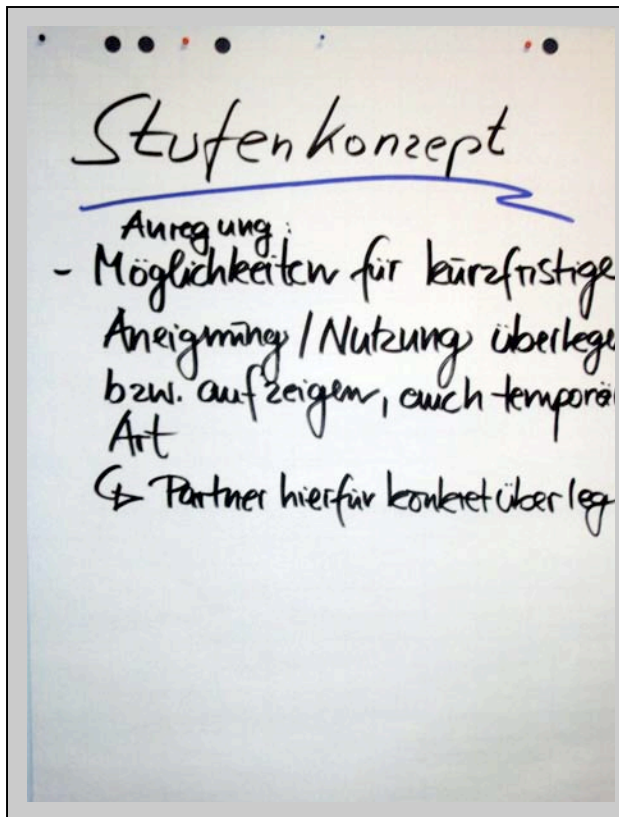 Stufenkonzept
Anregung:
- Möglichkeiten für kurzfristige
Aneignung / Nutzung überlege
bzw. aufzeigen, auch temporä
Art
↳ Partner hierfür konkret überleg